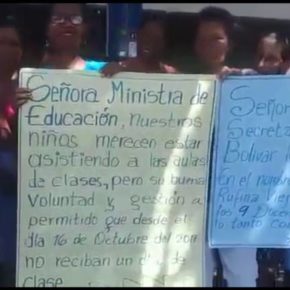 Señora Ministra de
Educación, nuestros
niños merecen estar
asistiendo a las aulas
de clases, pero su buena
Voluntad y gestión a
permitido que desde el
día 16 de Octubre del
no reciban un de
clase
Señor
Secreta
Bolívar
En el
Rufina
los 9 Docen
lo tanto co